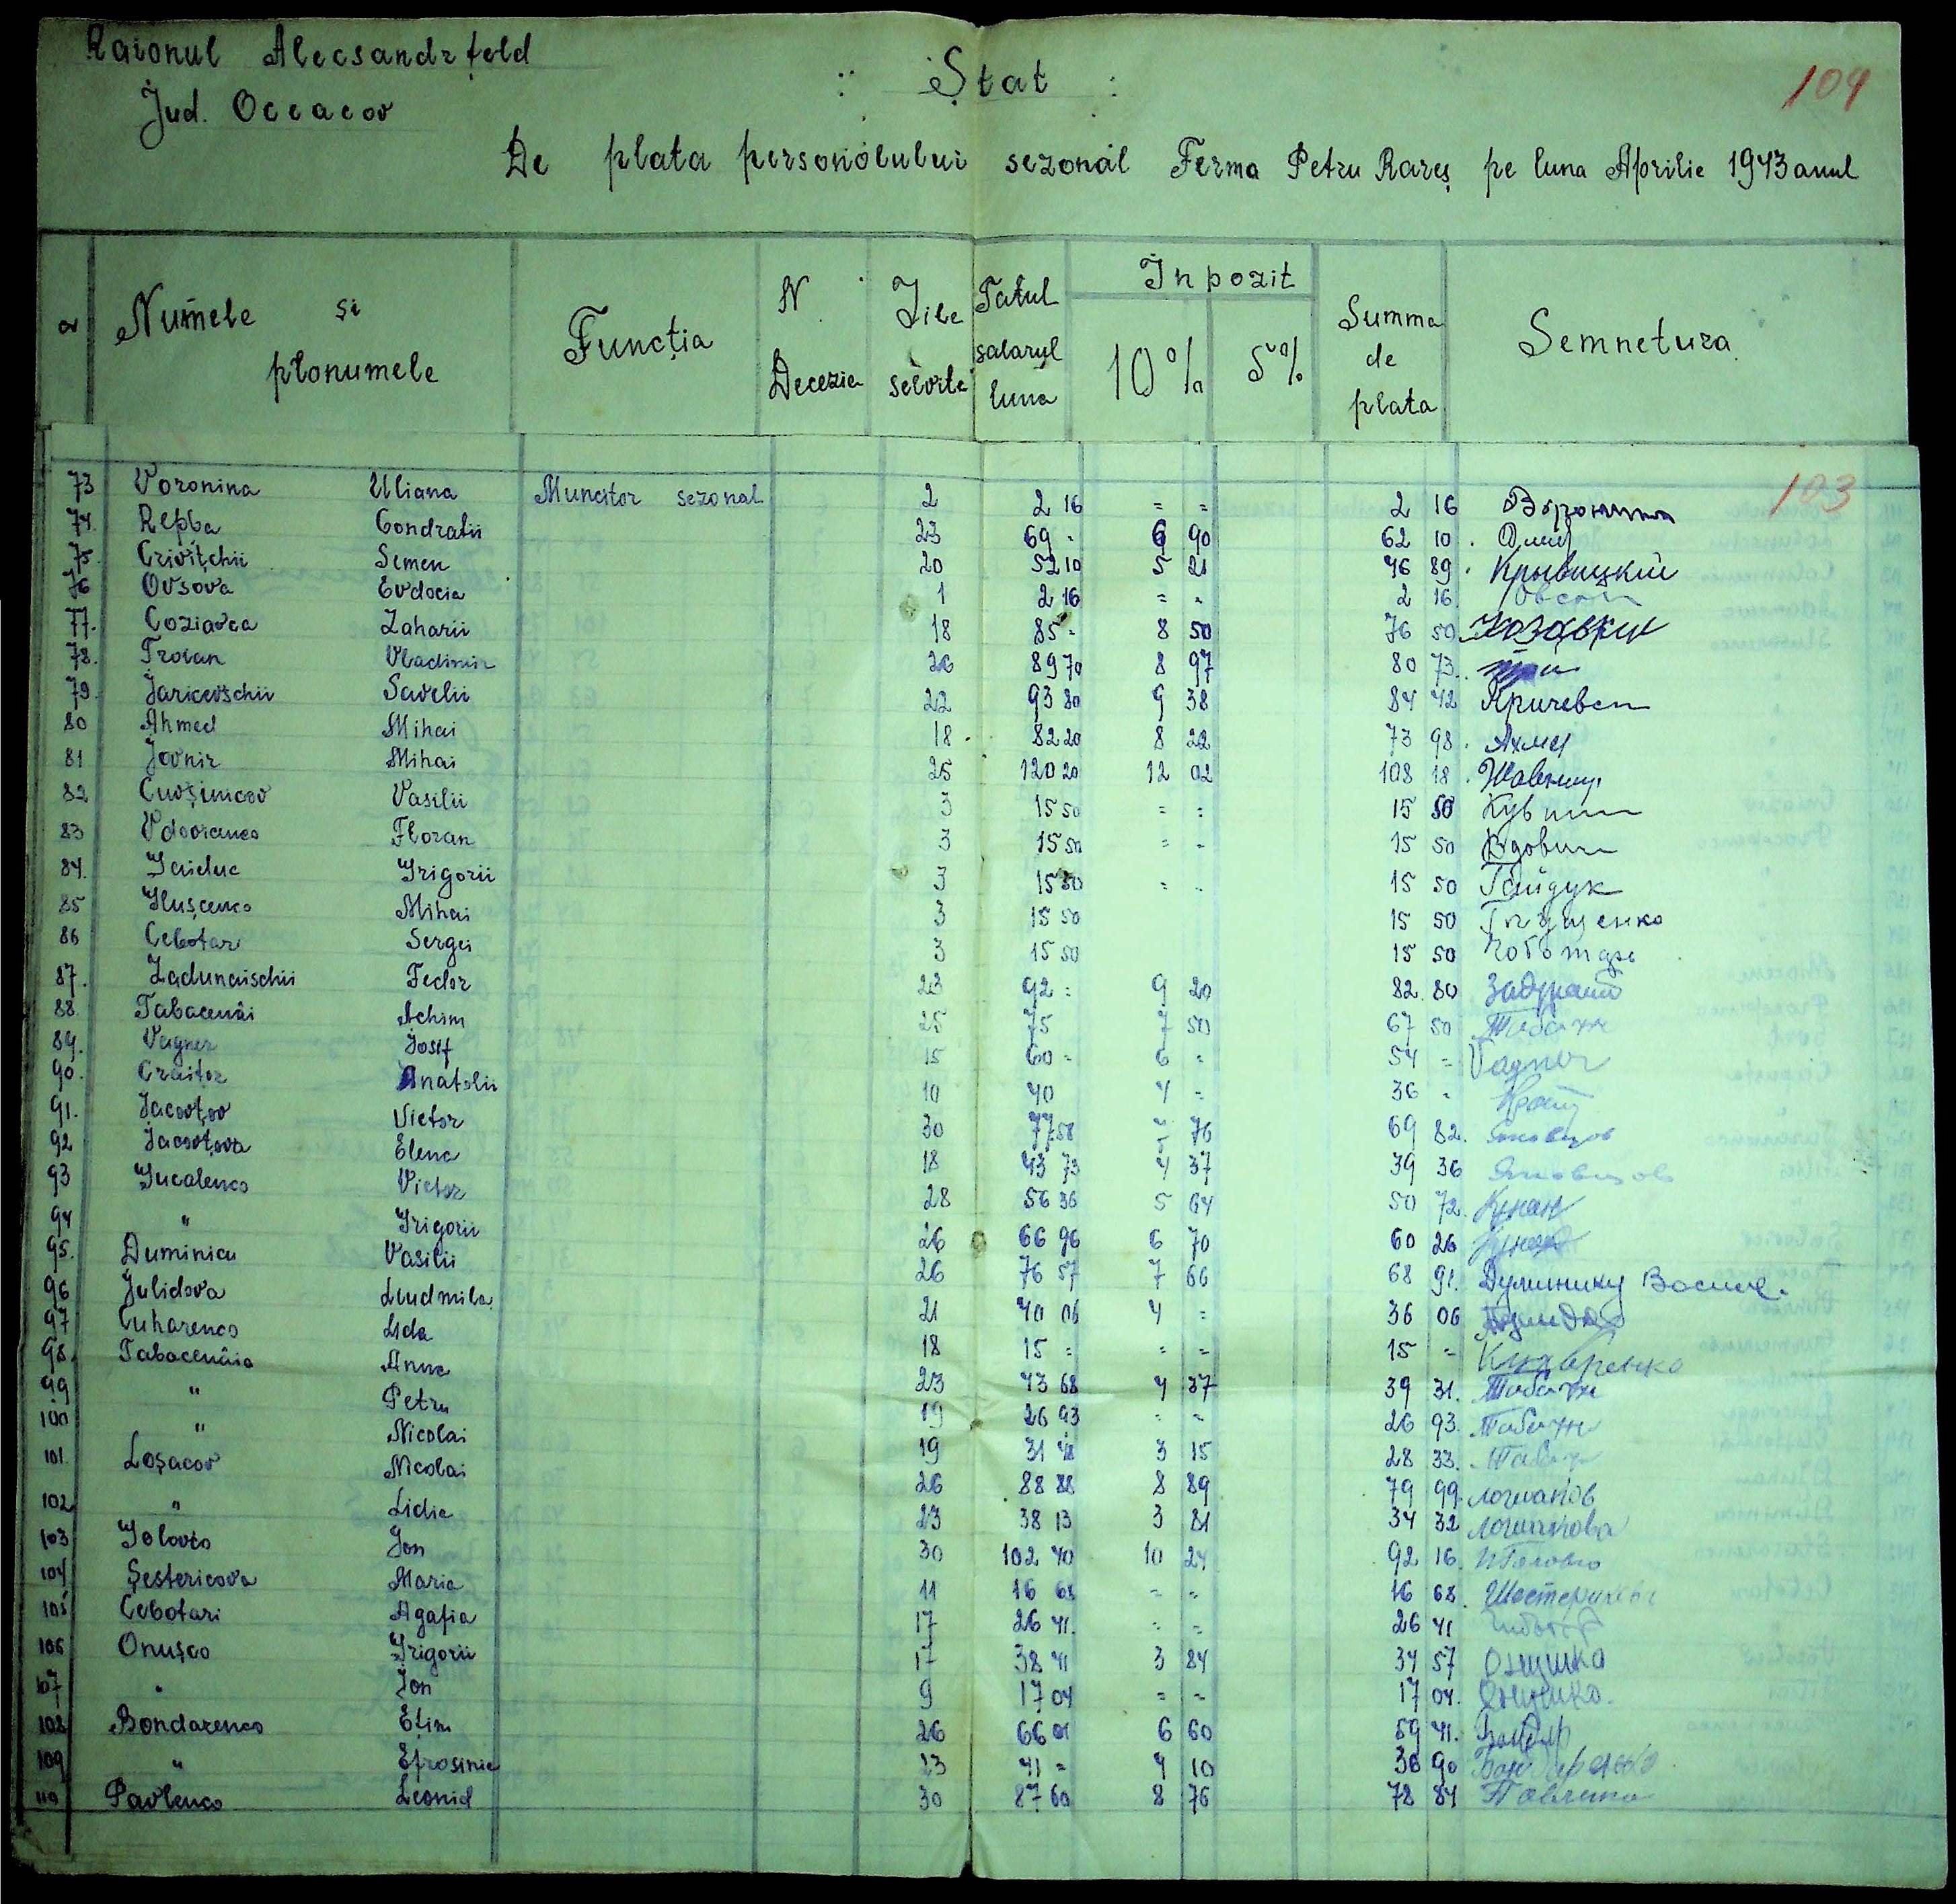 Raionul Alecsandrfeld
Jud. Oceacov
Ștat
104
De plata personolului sezonal Ferma Petru Rareș pe luna Aprilie 1943 anul
Numele și plonumele Funcția N Decezia Zile selvrte Tatul salaryl luna Inpozit 10% 5% Summa de plata Semnetura
103
73 Voronina Uliana Muncitor sezonal 2 2 16 = = 2 16 Воронина
74. Repba Condratii 23 69 - 6 90 62 10
75. Crivițchii Semen 20 52 10 5 21 46 89 Крывицкий
76 Ovsova Evdocia 1 2 16 = = 2 16
77. Coziavca Zaharii 18 85 - 8 50 76 50
78. Troian Vladimir 26 89 70 8 97 80 73
79. Jaricevschii Savelii 22 93 80 9 38 84 42
80 Ahmed Mihai 18 82 20 8 22 73 98 Ахмед
81 Jovnir Mihai 25 120 20 12 02 108 18
82 Cuvșinicov Vasilii 3 15 50 = = 15 50
83 Vdovicenco Floran 3 15 50 = - 15 50
84. Gaiduc Grigorii 3 15 50 = - 15 50 Гайдук
85 Glușcenco Mihai 3 15 50 15 50 Глущенко
86 Cebotar Sergei 3 15 50 15 50 Чоботарь
87. Zadunaischii Fedor 23 92 = 9 20 82 80
88. Tabacenâi Achim 25 75 7 50 67 50
89. Vagner Josif 15 60 = 6 = 54 = Vagner
90. Craitor Anatolii 10 40 4 = 36 -
91. Jacovțov Victor 30 77 58 76 69 82
92 Jacovțova Elena 18 43 73 4 37 39 36
93 Gucalenco Victor 28 56 36 5 64 50 72
94 " Grigorii 26 66 96 6 70 60 26
95. Duminicu Vasilii 26 76 57 7 66 68 91
96 Julidova Liudmila 21 40 06 4 = 36 06
97 Cuharenco Lida 18 15 = = = 15 = Кухаренко
98. Tabacenâia Anna 23 43 68 4 37 39 31
99 " Petru 19 26 93 = = 26 93
100 " Nicolai 19 31 48 3 15 28 33
101. Loșacov Nicolai 26 88 88 8 89 79 99
102 " Lidia 23 38 13 3 81 34 32
103 Golovco Jon 30 102 40 10 24 92 16
104 Șestericova Maria 11 16 68 = = 16 68
105 Cebotari Agafia 17 26 41 = = 26 41
106 Onușco Grigorii 17 38 41 3 84 34 57 Онушка
107 " Jon 9 17 04 = = 17 04 Онушко
108 Bondarenco Efim 26 66 01 6 60 59 41
109 " Efrosinia 23 41 = 4 10 36 90
110 Pavlenco Leonid 30 87 60 8 76 78 84